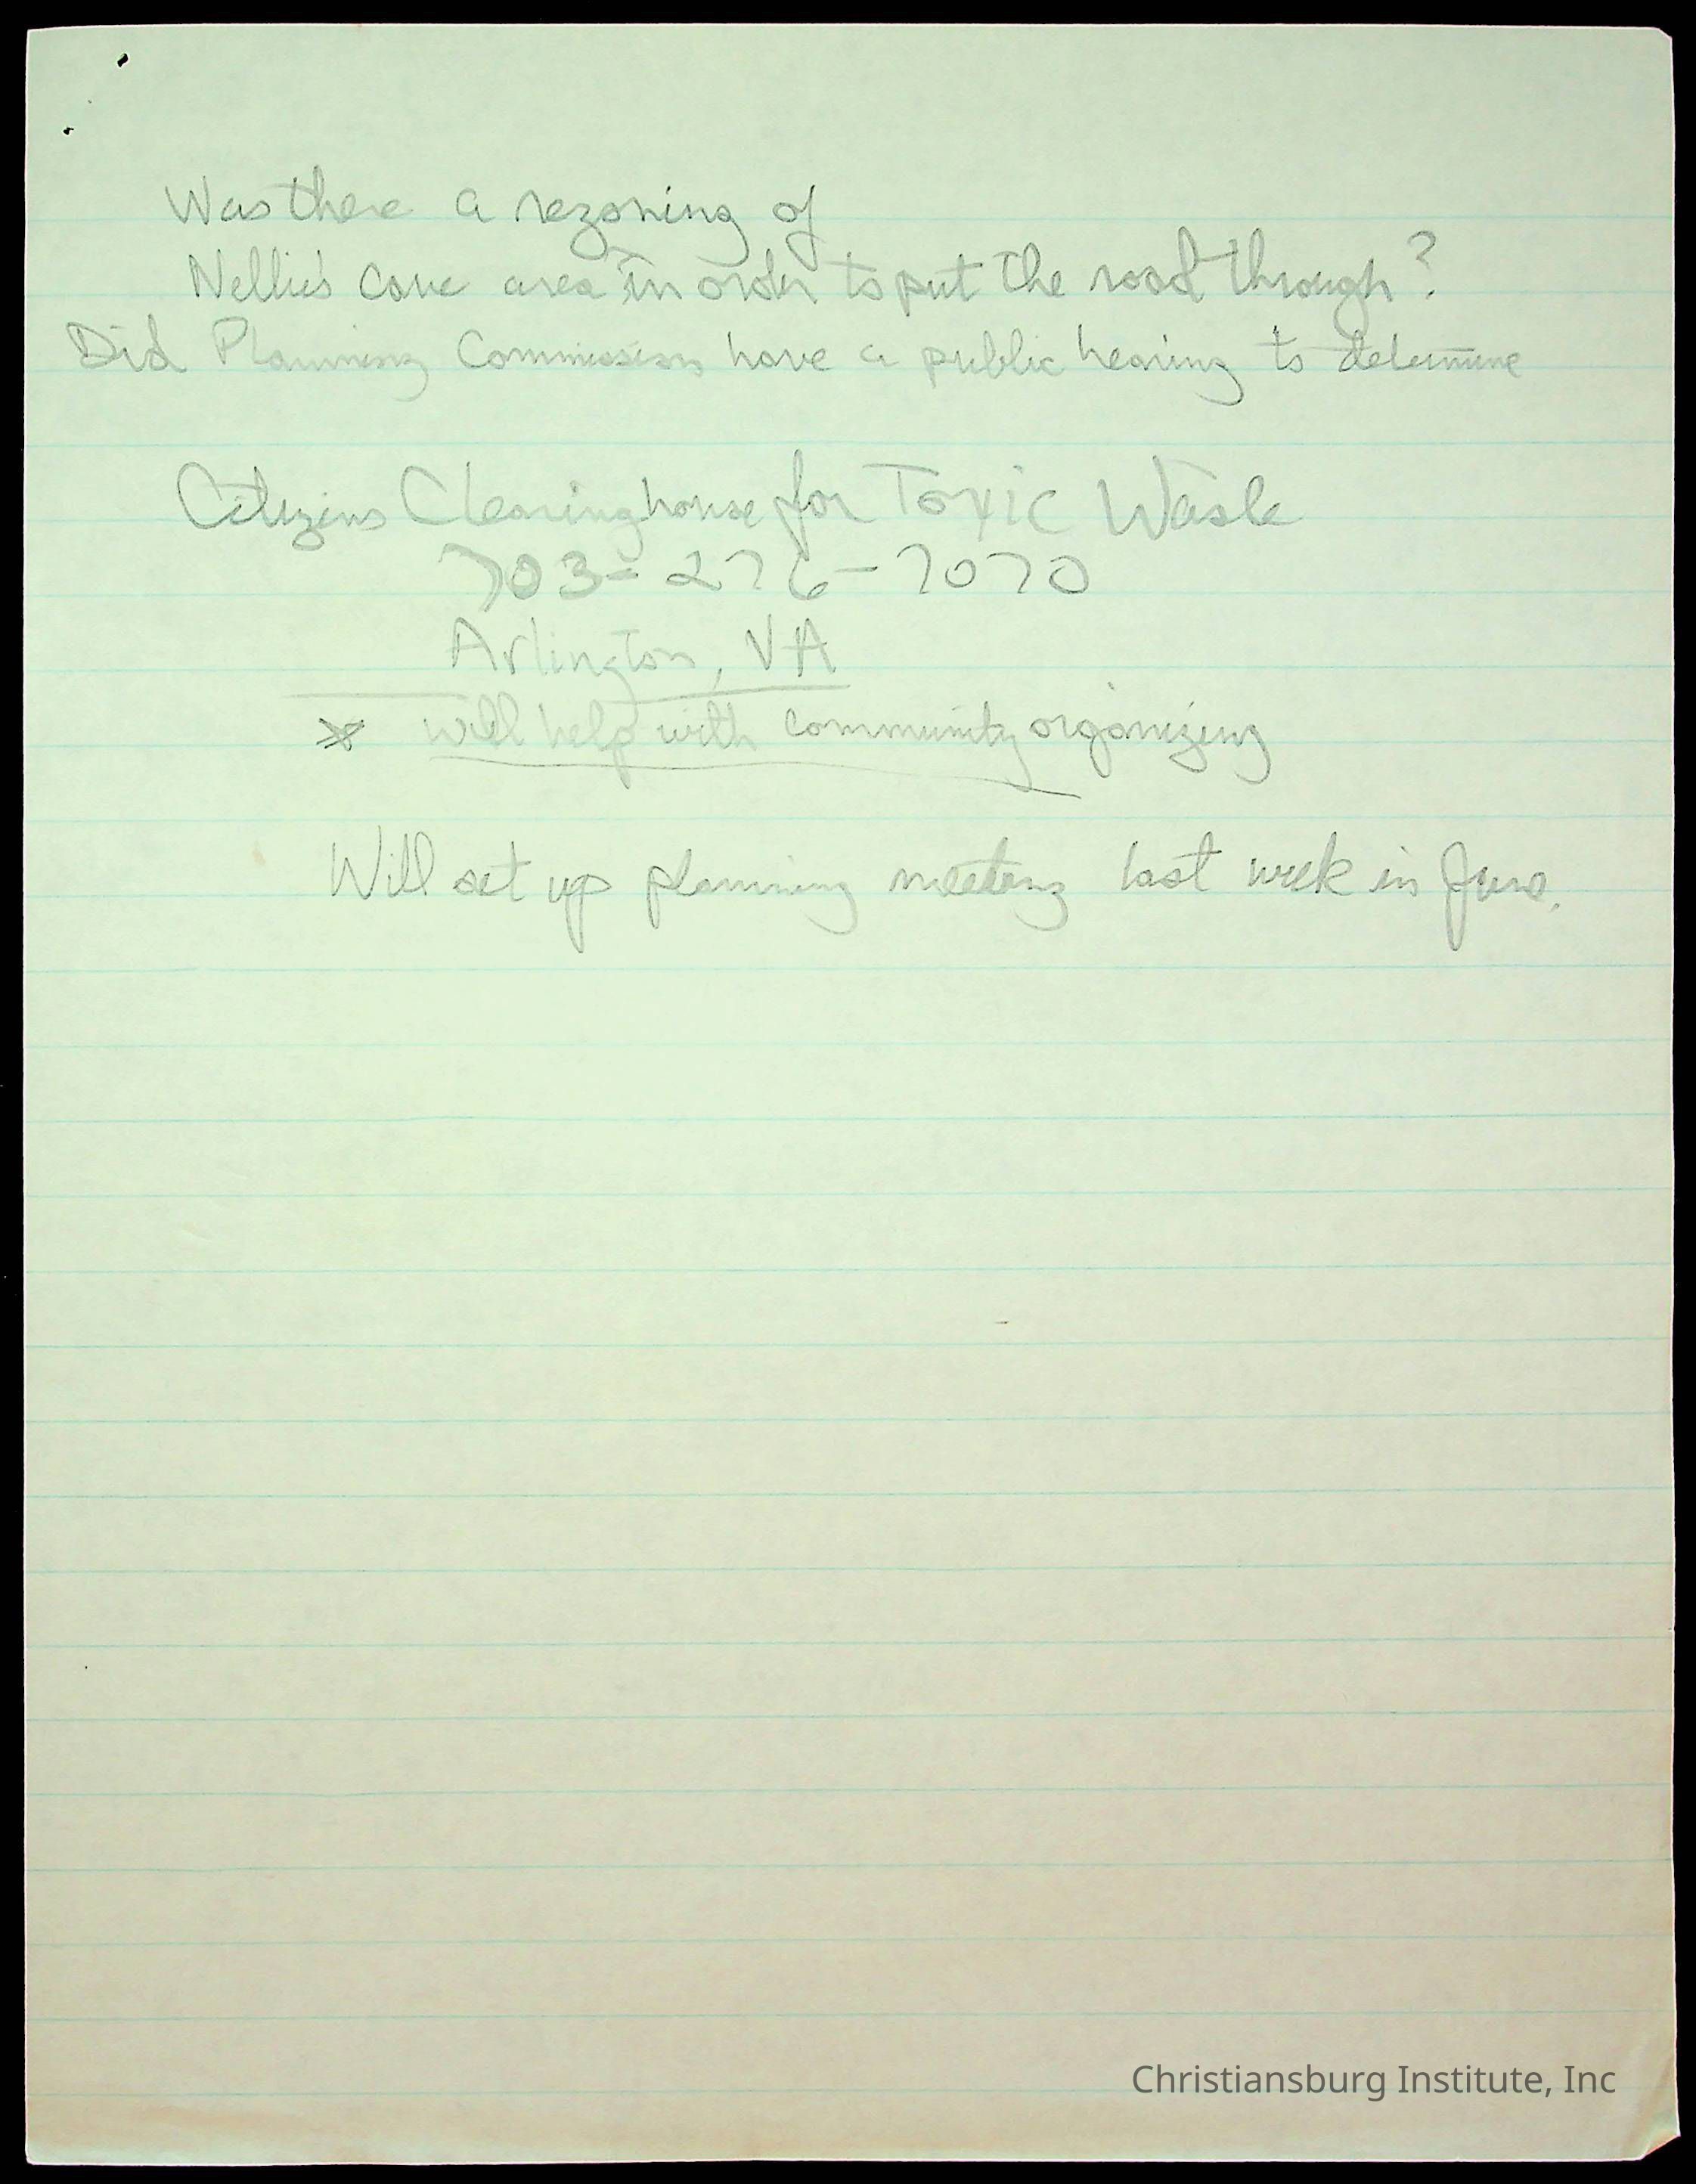 Was there a rezoning of
Nellie's Cave area in order to put the road through?
Did Planning Commission have a public hearing to determine
Citizens Clearinghouse for Toxic Waste
703-276-7070
Arlington, VA
* will help with community organizing
Will set up planning meeting last week in June.
Christiansburg Institute, Inc